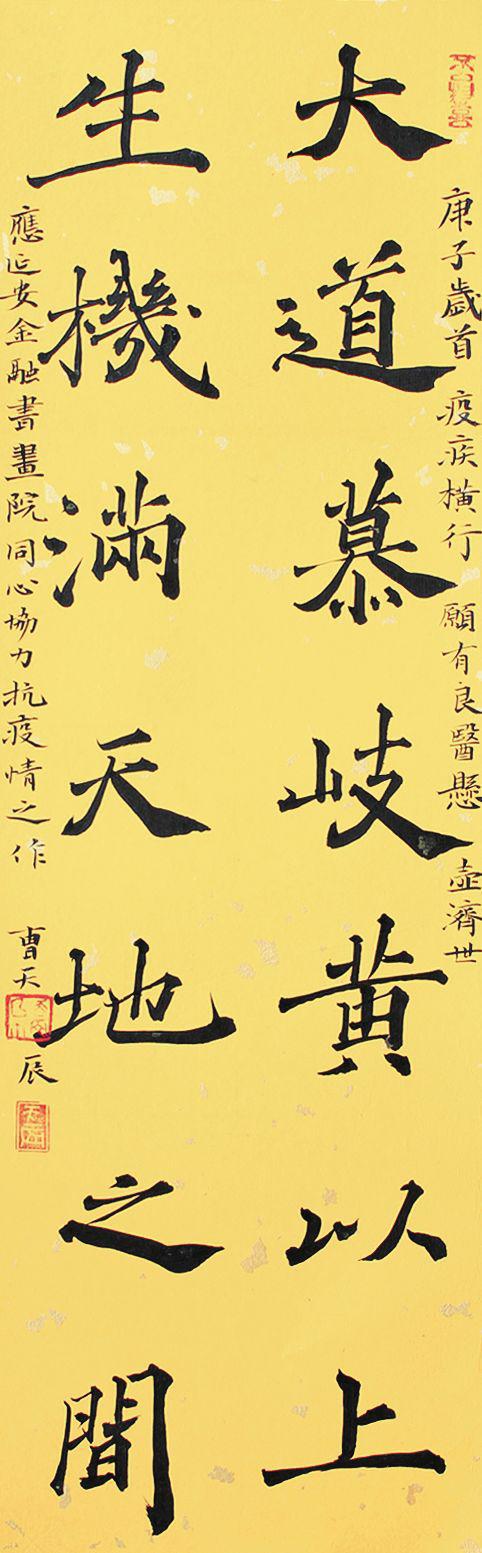 庚子歲首 疫疾橫行 願有良醫懸壺濟世
大道慕岐黄以上
生機滿天地之間
應延安金融書畫院同心協力抗疫情之作 曹天辰